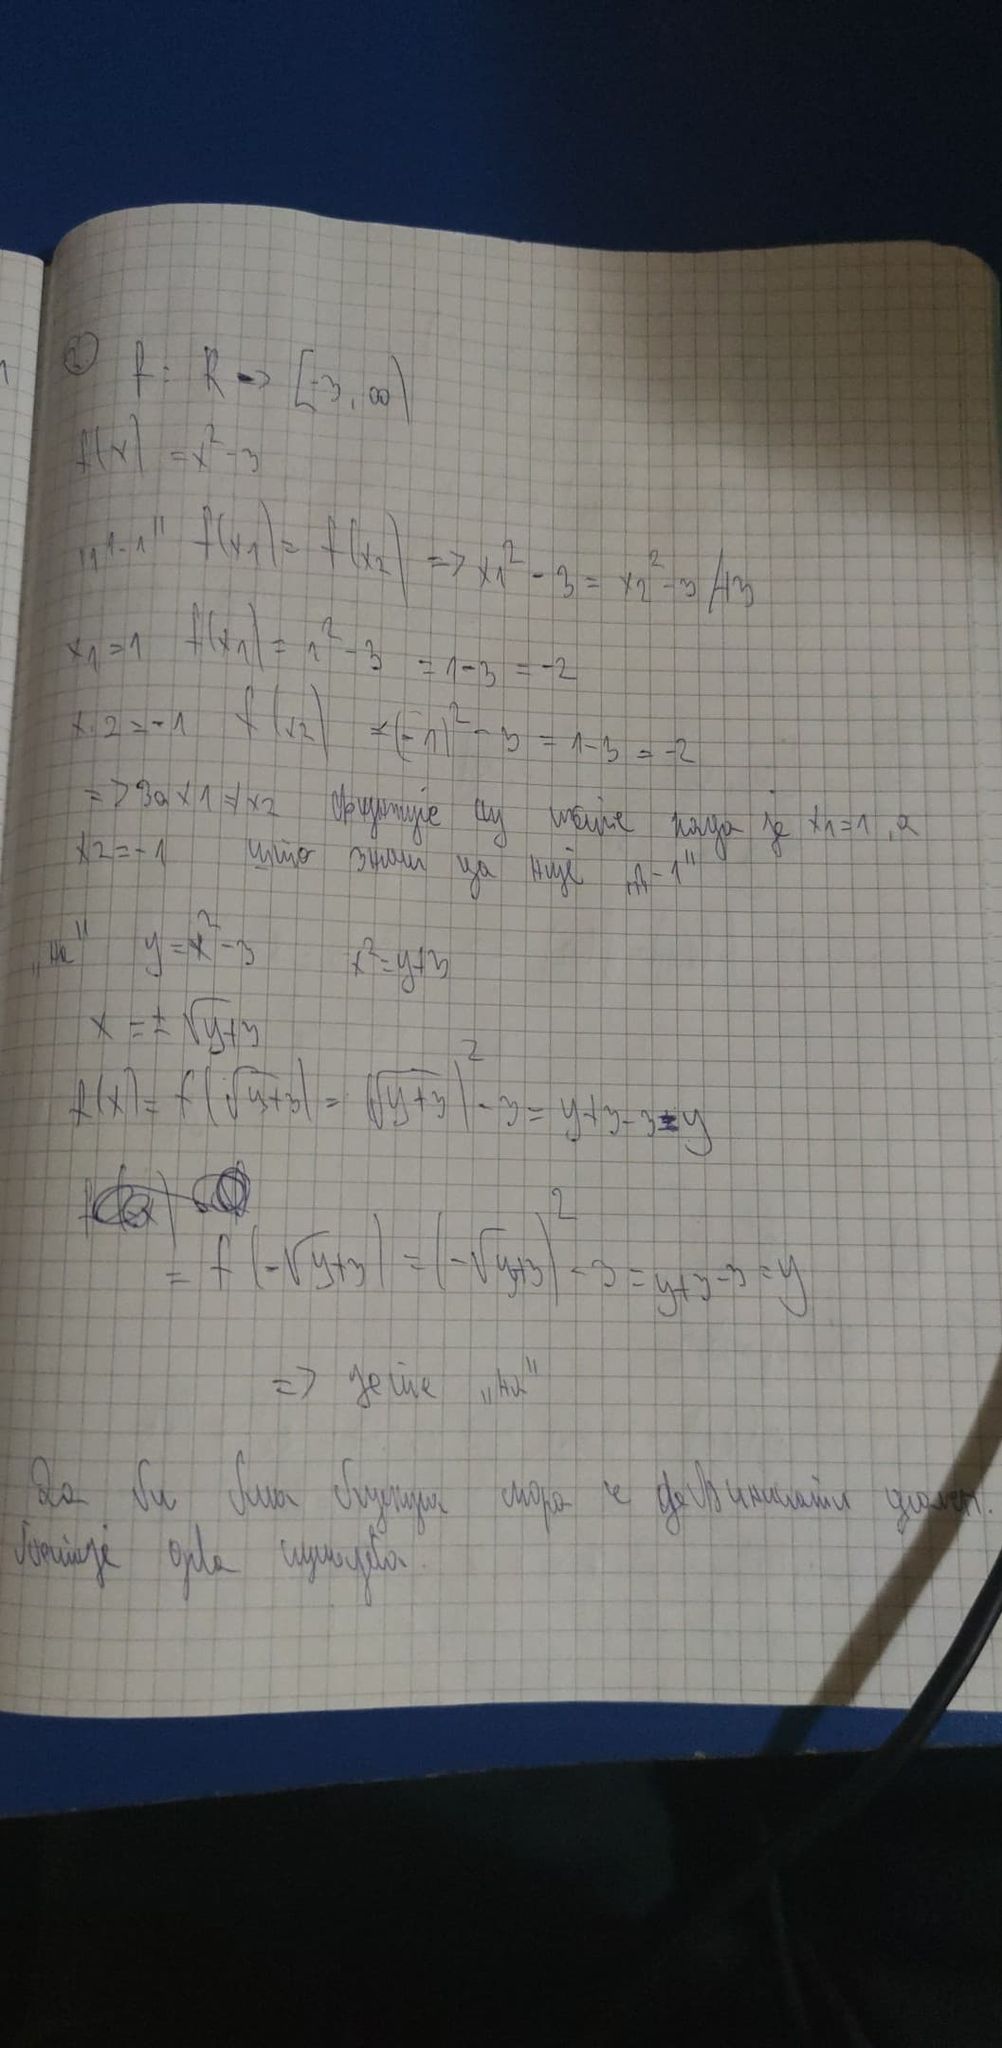 2) f: R -> [-3, ∞)
f(x) = x² - 3
„1-1" f(x1) = f(x2) => x1² - 3 = x2² - 3 /+3
x1 = 1 f(x1) = 1² - 3 = 1 - 3 = -2
x2 = -1 f(x2) = (-1)² - 3 = 1 - 3 = -2
=> За x1 ≠ x2 функције су исте када је x1 = 1, а
x2 = -1 што значи да није „1-1"
„на" y = x² - 3 x² = y+3
x = ± √y+3
f(x) = f(√y+3) = (√y+3)² - 3 = y+3-3 = y
= f(-√y+3) = (-√y+3)² - 3 = y+3-3 = y
=> јесте „на"
Да би била мора се домен.